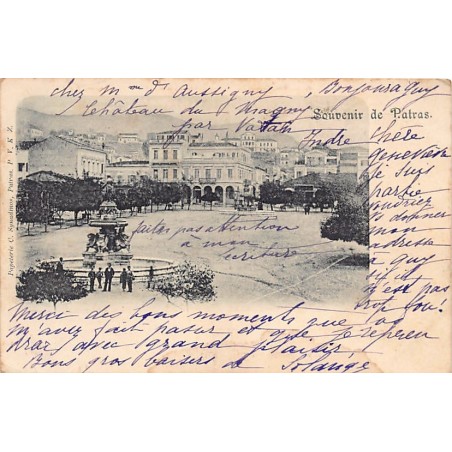 chez Mme d'Aussigny, Bonjour a guy
château du Magny
par Vatan Indre
Souvenir de Patras.
Chère
geneviève
je suis
partie
voudriez
vs donner
mon
adresse
a guy
s'il
n'est pas
trop fou!
faites pas attention
a mon
écriture
Merci des bons moments que tu
m'avez fait passer et que je reper
drai avec grand plaisir
Bons gros baisers de Solange
Papeterie C. Spandinos, Patras. P V. K Z.